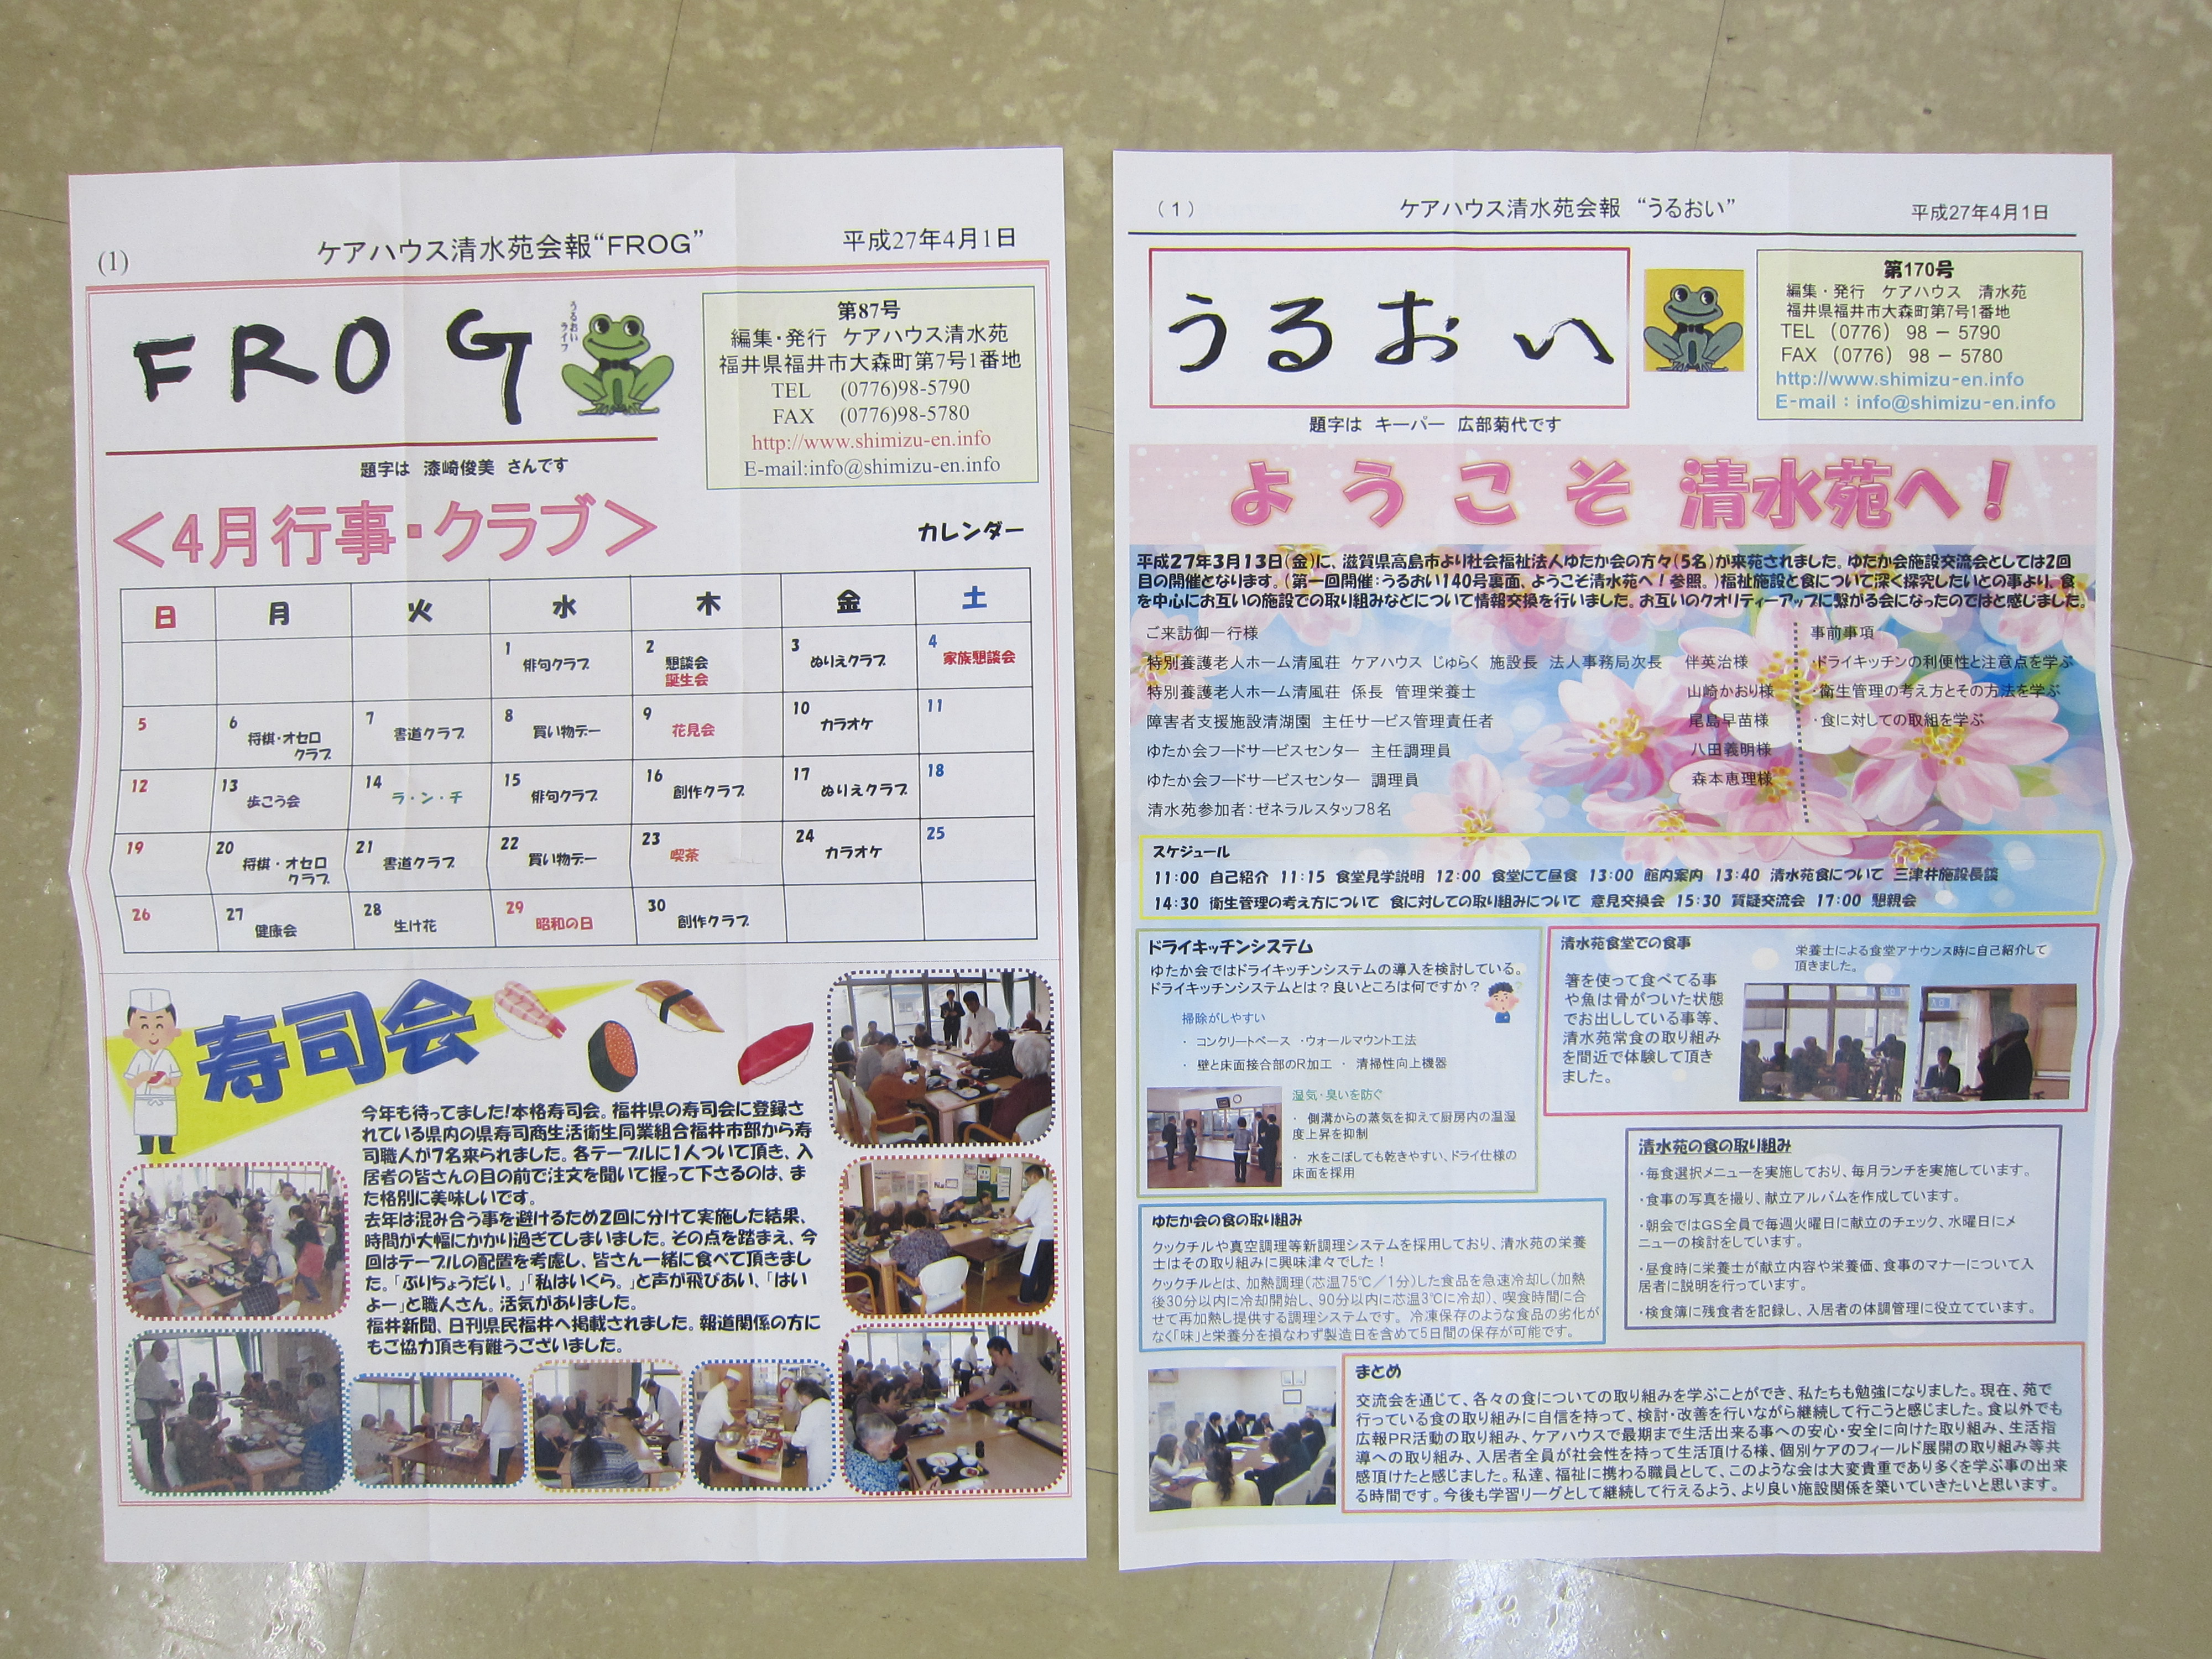 (1)
ケアハウス清水苑会報“FROG”
平成27年4月1日
FROG
うるおい
ライフ
第87号
編集・発行 ケアハウス清水苑
福井県福井市大森町第7号1番地
TEL (0776)98-5790
FAX (0776)98-5780
http://www.shimizu-en.info
E-mail:info@shimizu-en.info
題字は 漆崎俊美 さんです
＜4月行事・クラブ＞
カレンダー
日 月 火 水 木 金 土
1 俳句クラブ
2 懇談会
誕生会
3 ぬりえクラブ
4 家族懇談会
5
6 将棋・オセロ
クラブ
7 書道クラブ
8 買い物デー
9 花見会
10 カラオケ
11
12
13 歩こう会
14 ラ・ン・チ
15 俳句クラブ
16 創作クラブ
17 ぬりえクラブ
18
19
20 将棋・オセロ
クラブ
21 書道クラブ
22 買い物デー
23 喫茶
24 カラオケ
25
26
27 健康会
28 生け花
29 昭和の日
30 創作クラブ
寿司会
今年も待ってました!本格寿司会。福井県の寿司会に登録さ
れている県内の県寿司商生活衛生同業組合福井市部から寿
司職人が7名来られました。各テーブルに1人ついて頂き、入
居者の皆さんの目の前で注文を聞いて握って下さるのは、ま
た格別に美味しいです。
去年は混み合う事を避けるため2回に分けて実施した結果、
時間が大幅にかかり過ぎてしまいました。その点を踏まえ、今
回はテーブルの配置を考慮し、皆さん一緒に食べて頂きまし
た。「ぶりちょうだい。」「私はいくら。」と声が飛びあい、「はい
よー」と職人さん。活気がありました。
福井新聞、日刊県民福井へ掲載されました。報道関係の方に
もご協力頂き有難うございました。
（1）
ケアハウス清水苑会報 “うるおい”
平成27年4月1日
うるおい
第170号
編集・発行 ケアハウス 清水苑
福井県福井市大森町第7号1番地
TEL （0776） 98 － 5790
FAX （0776） 98 － 5780
http://www.shimizu-en.info
E-mail：info@shimizu-en.info
題字は キーパー 広部菊代です
ようこそ 清水苑へ！
平成27年3月13日(金)に、滋賀県高島市より社会福祉法人ゆたか会の方々(5名)が来苑されました。ゆたか会施設交流会としては2回
目の開催となります。(第一回開催:うるおい140号裏面、ようこそ清水苑へ！参照。)福祉施設と食について深く探究したいとの事より、食
を中心にお互いの施設での取り組みなどについて情報交換を行いました。お互いのクオリティーアップに繋がる会になったのではと感じました。
ご来訪御一行様
特別養護老人ホーム清風荘 ケアハウス じゅらく 施設長 法人事務局次長 伴英治様
特別養護老人ホーム清風荘 係長 管理栄養士 山崎かおり様
障害者支援施設清湖園 主任サービス管理責任者 尾島早苗様
ゆたか会フードサービスセンター 主任調理員 八田義明様
ゆたか会フードサービスセンター 調理員 森本恵理様
清水苑参加者：ゼネラルスタッフ8名
事前事項
・ドライキッチンの利便性と注意点を学ぶ
・衛生管理の考え方とその方法を学ぶ
・食に対しての取組を学ぶ
スケジュール
11:00 自己紹介 11:15 食堂見学説明 12:00 食堂にて昼食 13:00 館内案内 13:40 清水苑食について 三津井施設長談
14:30 衛生管理の考え方について 食に対しての取り組みについて 意見交換会 15:30 質疑交流会 17:00 懇親会
ドライキッチンシステム
ゆたか会ではドライキッチンシステムの導入を検討している。
ドライキッチンシステムとは？良いところは何ですか？
掃除がしやすい
・ コンクリートベース ・ウォールマウント工法
・ 壁と床面接合部のR加工 ・ 清掃性向上機器
湿気・臭いを防ぐ
・ 側溝からの蒸気を抑えて厨房内の温湿
度上昇を抑制
・ 水をこぼしても乾きやすい、ドライ仕様の
床面を採用
清水苑食堂での食事
栄養士による食堂アナウンス時に自己紹介して
頂きました。
箸を使って食べてる事
や魚は骨がついた状態
でお出ししている事等、
清水苑常食の取り組み
を間近で体験して頂き
ました。
清水苑の食の取り組み
・毎食選択メニューを実施しており、毎月ランチを実施しています。
・食事の写真を撮り、献立アルバムを作成しています。
・朝会ではGS全員で毎週火曜日に献立のチェック、水曜日にメ
ニューの検討をしています。
・昼食時に栄養士が献立内容や栄養価、食事のマナーについて入
居者に説明を行っています。
・検食簿に残食者を記録し、入居者の体調管理に役立てています。
ゆたか会の食の取り組み
クックチルや真空調理等新調理システムを採用しており、清水苑の栄養
士はその取り組みに興味津々でした！
クックチルとは、加熱調理(芯温75℃／1分)した食品を急速冷却し(加熱
後30分以内に冷却開始し、90分以内に芯温3℃に冷却)、喫食時間に合
せて再加熱し提供する調理システムです。冷凍保存のような食品の劣化が
なく「味」と栄養分を損なわず製造日を含めて5日間の保存が可能です。
まとめ
交流会を通じて、各々の食についての取り組みを学ぶことができ、私たちも勉強になりました。現在、苑で
行っている食の取り組みに自信を持って、検討・改善を行いながら継続して行こうと感じました。食以外でも
広報PR活動の取り組み、ケアハウスで最期まで生活出来る事への安心・安全に向けた取り組み、生活指
導への取り組み、入居者全員が社会性を持って生活頂ける様、個別ケアのフィールド展開の取り組み等共
感頂けたと感じました。私達、福祉に携わる職員として、このような会は大変貴重であり多くを学ぶ事の出来
る時間です。今後も学習リーグとして継続して行えるよう、より良い施設関係を築いていきたいと思います。